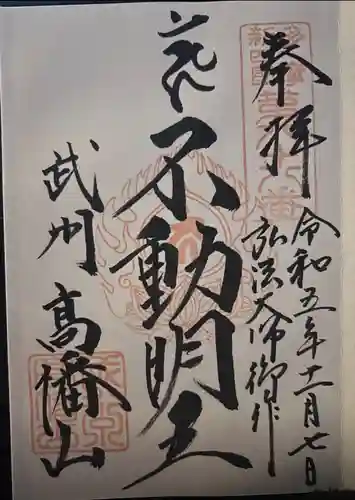 奉拝
令和五年十一月七日
弘法大師御作
不動明王
武州
高幡山